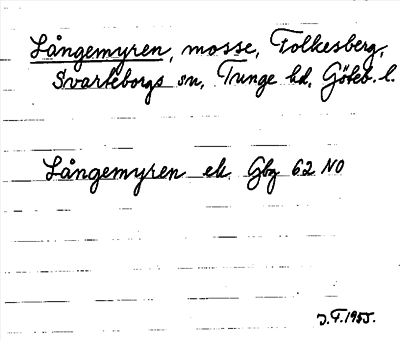 Långemyren, mosse, Folkesberg,
Svarteborgs sn, Tunge hd, Göteb. l.
Långemyren ek Gbg 62 NO
J. F. 1955.